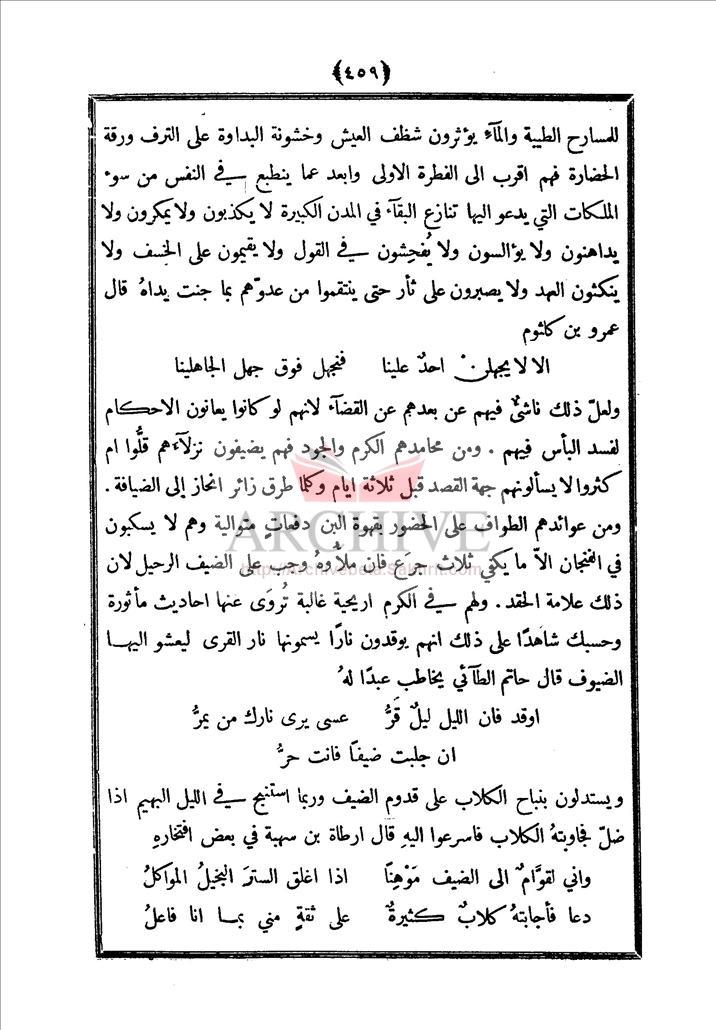 ﴿٤٥٩﴾
للمسارح الطيبة والمآء يؤثرون شظف العيش وخشونة البداوة على الترف ورقة
الحضارة فهم اقرب الى الفطرة الاولى وابعد عما ينطبع في النفس من سوء
الملكات التي يدعو اليها تنازع البقآء في المدن الكبيرة لا يكذبون ولا يمكرون ولا
يداهنون ولا يؤالسون ولا يُفحِشون في القول ولا يقيمون على الخسف ولا
ينكثون العهد ولا يصبرون على ثأر حتى ينتقموا من عدوّهم بما جنت يداهُ قال
عمرو بن كلثوم
الا لا يجهلن احدٌ علينا فنجهل فوق جهل الجاهلينا
ولعلّ ذلك ناشئٌ فيهم عن بعدهم عن القضآء لانهم لو كانوا يعانون الاحكام
لفسد البأس فيهم . ومن محامدهم الكرم والجود فهم يضيفون نزلآءهم قلُّوا ام
كثروا لا يسألونهم جهة القصد قبل ثلاثة ايام وكلما طرق زائر انحاز إلى الضيافة .
ومن عوائدهم الطواف على الحضور بقهوة البن دفعاتٍ متوالية وهم لا يسكبون
في الفنجان الاّ ما يكفي ثلاث جرَع فان ملأوهُ وجب على الضيف الرحيل لان
ذلك علامة الحقد . ولهم في الكرم اريحية غالبة تُروَى عنها احاديث مأثورة
وحسبك شاهدًا على ذلك انهم يوقدون نارًا يسمونها نار القرى ليعشو اليها
الضيوف قال حاتم الطآئي يخاطب عبدًا لهُ
اوقد فان الليل ليلٌ قَرُّ عسى يرى نارك من يمرُّ
ان جلبت ضيفًا فانت حرُّ
ويستدلون بنباح الكلاب على قدوم الضيف وربما استنبح في الليل البهيم اذا
ضلّ فجاوبتهُ الكلاب فاسرعوا اليهِ قال ارطاة بن سهية في بعض افتخارهِ
واني لقوَّامٌ الى الضيف مَوْهِنًا اذا اغلق السترَ البخيلُ المواكلُ
دعا فأجابتهُ كلابٌ كثيرةٌ على ثقةٍ مني بما انا فاعلُ
ARCHIVE
http://Archivebeta.Sakhrit.com